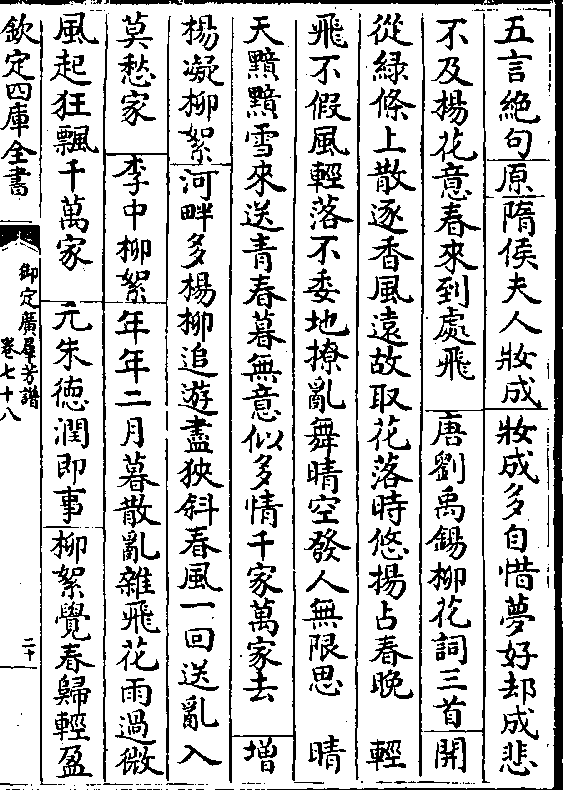 五言絶句原隋侯夫人妝成妝成多自惜夢好却成悲
不及楊花意春來到處飛 唐劉禹錫柳花詞三首開
從緑條上散逐香風遠故取花落時悠揚占春晚 輕
飛不假風輕落不委地撩亂舞晴空發人無限思 晴
天黯黯雪來送青春暮無意似多情千家萬家去 增
楊凝柳絮河畔多楊柳追遊盡狹斜春風一回送亂入
莫愁家 李中柳絮年年二月暮散亂雜飛花雨過微
風起狂飄千萬家 元朱徳潤即事柳絮覺春歸輕盈
欽定四庫全書
御定廣羣芳譜
卷七十八
二十